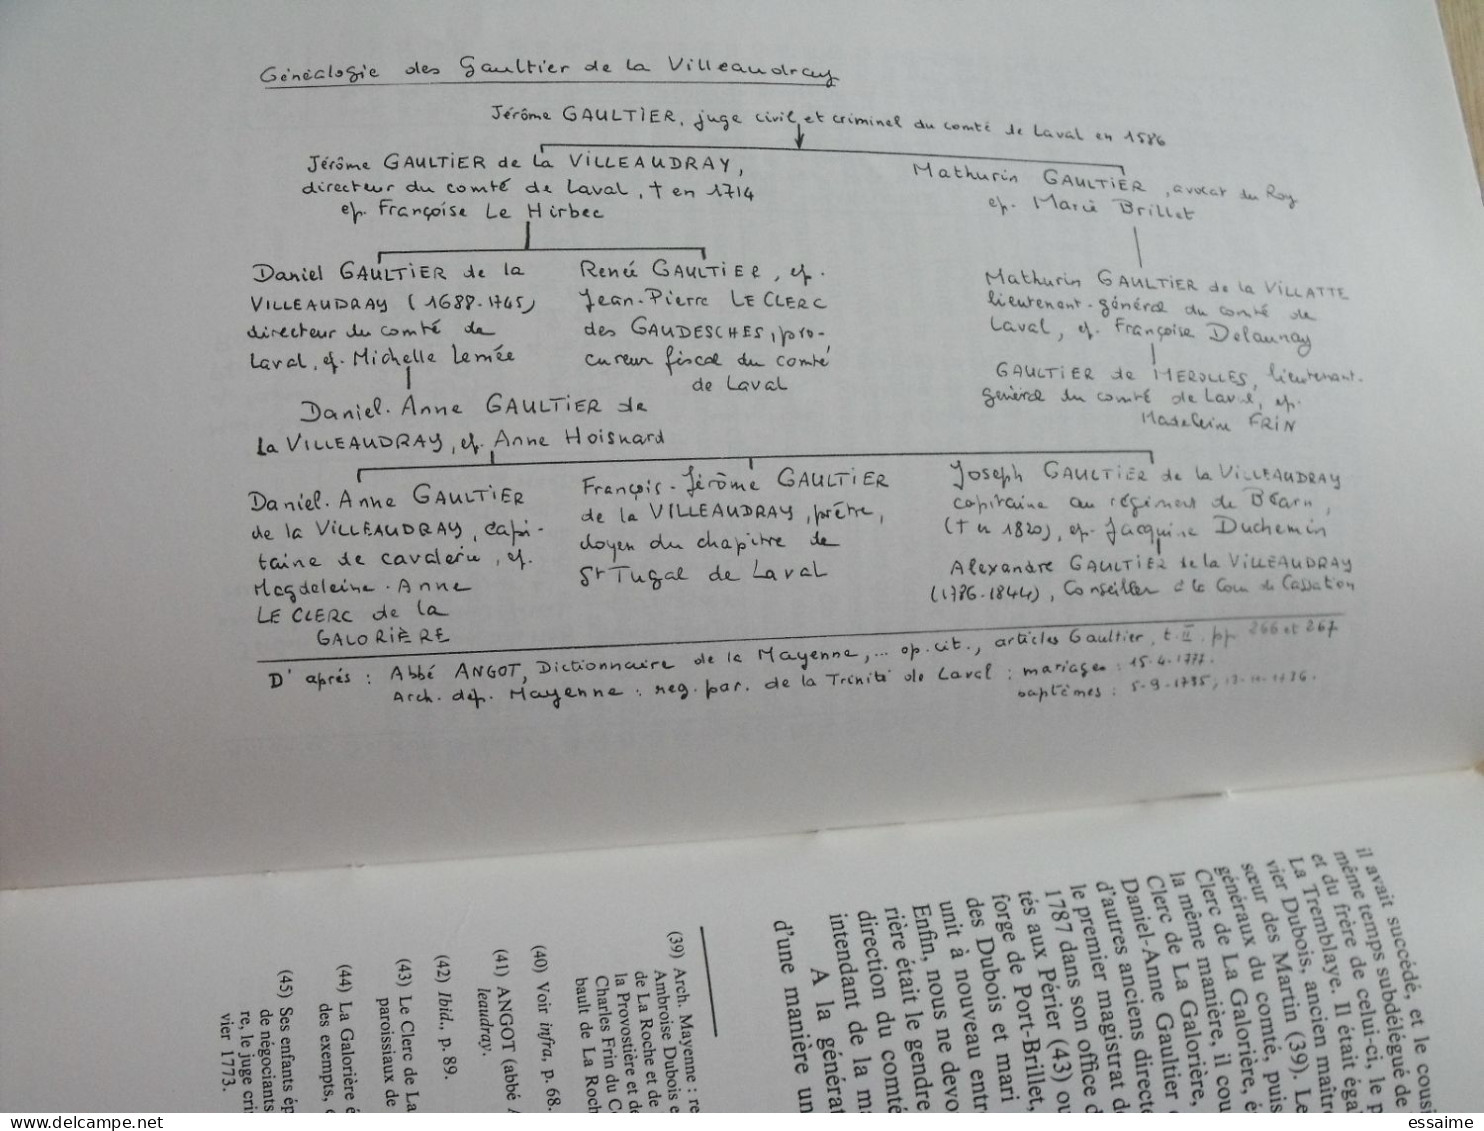 Généalogie des Gaultier de la Villeaudray
Jérôme GAULTIER, juge civil et criminel du comté de Laval en 1586
Jérôme GAULTIER de la VILLEAUDRAY,
directeur du comté de Laval, † en 1714
ep. Françoise Le Hirbec
Mathurin GAULTIER, avocat du Roy
ep. Marie Brillet
Daniel GAULTIER de la
VILLEAUDRAY (1688-1745)
directeur du comté de
Laval, ep. Michelle Lemée
Renée GAULTIER, ep.
Jean-Pierre LE CLERC
des GAUDESCHES, pro-
cureur fiscal du comté
de Laval
Mathurin GAULTIER de la VILLATTE
lieutenant-général du comté de
Laval, ep. Françoise Delaunay
GAULTIER de MEROLLES, lieutenant-
général du comté de Laval, ep.
Madeleine FRIN
Daniel-Anne GAULTIER de
la VILLEAUDRAY, ep. Anne Hoisnard
Daniel-Anne GAULTIER
de la VILLEAUDRAY, capi-
taine de cavalerie, ep.
Magdeleine-Anne
LE CLERC de la
GALORIÈRE
François-Jérôme GAULTIER
de la VILLEAUDRAY, prêtre,
doyen du chapitre de
St Tugal de Laval
Joseph GAULTIER de la VILLEAUDRAY
capitaine au régiment de Béarn,
(† en 1820), ep. Jacquine Duchemin
Alexandre GAULTIER de la VILLEAUDRAY
(1786-1844), Conseiller à la Cour de Cassation
D'après : Abbé ANGOT, Dictionnaire de la Mayenne,... op. cit., articles Gaultier, t. II, pp 266 et 267
Arch. dep. Mayenne : reg. par. de la Trinité de Laval : mariages : 15.4.1777.
baptêmes : 5-9-1735,
il avait succédé, et le cousi
même temps subdélégué de
et du frère de celui-ci, le p
La Tremblaye. Il était éga
vier Dubois, ancien maître
sœur des Martin (39). Le
généraux du comté, puis
Clerc de La Galorière, é
Clerc même manière, il cou
la même
Clerc de La Galorière,
Daniel-Anne Gaultier
d'autres anciens directe
le premier magistrat de
1787 dans son office d
tés aux Périer (43) ou
forge de Port-Brillet,
des Dubois et mari
unit à nouveau entr
Enfin, nous ne devo
rière était le gendre
direction du comté
intendant de la ma
A la générat
d'une manière un
(39) Arch. Mayenne : re
Ambroise Dubois e
de La Roche et de
la Provostière et de
Charles Frin du C
bault de La Roch
(40) Voir infra, p. 68.
(41) ANGOT (abbé A
leaudray.
(42) Ibid., p. 89.
(43) Le Clerc de La
paroissiaux de
(44) La Galorière é
des exempts,
(45) Ses enfants ép
de négociants
re, le juge cri
vier 1773.
www.delcampe.net
essaime